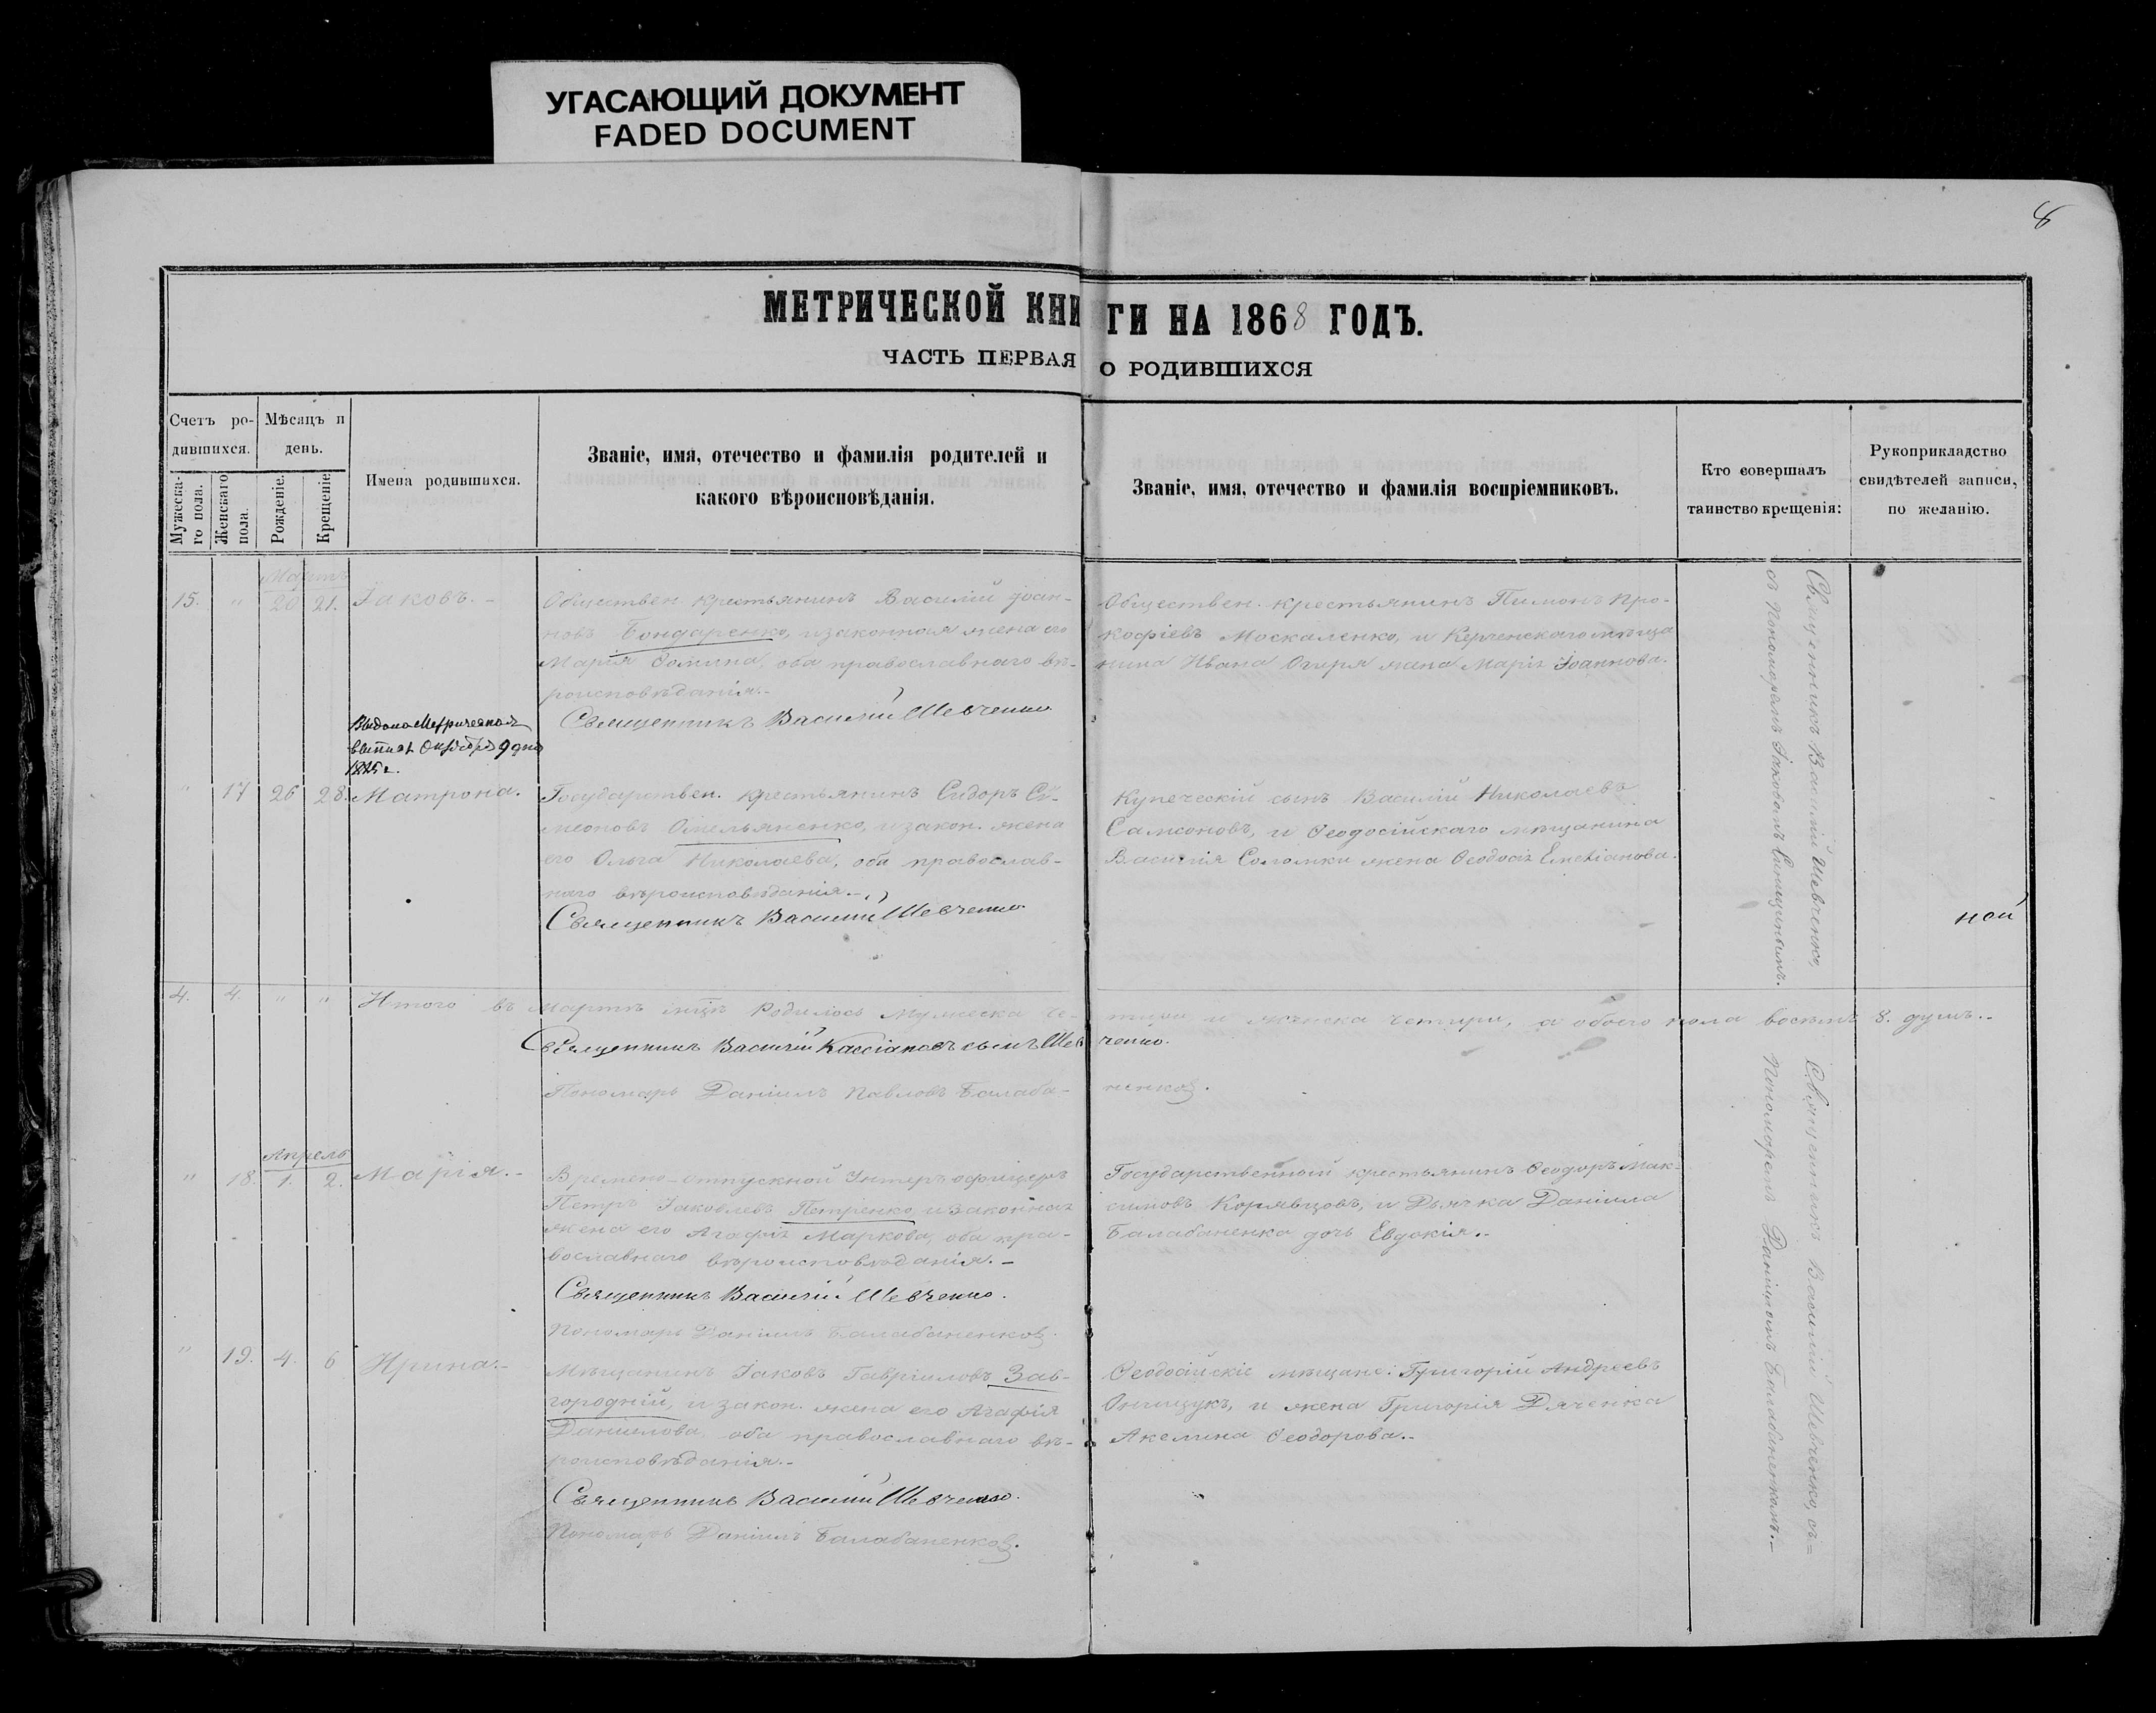 УГАСАЮЩИЙ ДОКУМЕНТ
FADED DOCUMENT
8
МЕТРИЧЕСКОЙ КНИГИ НА 1868 ГОДЪ.
ЧАСТЬ ПЕРВАЯ О РОДИВШИХСЯ
Счетъ ро-
дившихся.
Мужеска-
го пола.
Женскаго
пола.
Мѣсяцъ и
день.
Рожденіе.
Крещеніе
Имена родившихся.
Званіе, имя, отечество и фамилія родителей и
какого вѣроисповѣданія.
Званіе, имя, отечество и фамилія воспріемниковъ.
Кто совершалъ
таинство крещенія:
Рукоприкладство
свидѣтелей записи,
по желанію.
Мартъ
15. " 20 21. Іаковъ.-
Обществен. крестьянинъ Василій Іоан-
новъ Бондаренко, и законная жена его
Марія Ѳомина, оба православнаго вѣ-
роисповѣданія.-
Священникъ Василій Шевченко
Обществен. крестьянинъ Пимонъ Про-
кофіевъ Москаленко, и Керченскаго мѣща
нина Ивана Огиря жена Марія Іоаннова.
Священникъ Василій Шевченко,
съ Пономаремъ Іаковомъ
Выдана Метрическая
9 дня
" 17 26 28. Матрона.
Государствен. крестьянинъ Сидоръ Си-
меоновъ Омельяненко, и закон. жена
его Ольга Николаева, оба православ-
наго вѣроисповѣданія.-
Священникъ Василій Шевченко
Купеческій сынъ Василій Николаевъ
Самсоновъ, и Ѳеодосійскаго мѣщанина
Василія Соломки жена Ѳеодосія
ной
4. 4. " " Итого въ Мартѣ мцѣ Родилось Мужеска че-
тыри и женска четыри, а обоего пола восѣмъ 8. душъ.-
Священникъ Василій Кассіановъ сынъ Шевченко.
Пономарь Даніилъ Павловъ Балабаненко.
Апрель
" 18. 1. 2. Марія.-
Времено-отпускной Унтеръ офицеръ
Петръ Іаковлевъ Петренко, и законная
жена его Агафія Маркова, оба пра-
вославнаго вѣроисповѣданія.-
Священникъ Василій Шевченко.
Пономарь Даніилъ Балабаненко.
Государственный крестьянинъ Ѳеодоръ Мак-
симовъ Корявцовъ, и Дьячка Даніила
Балабаненка дочь Евдокія.-
Священникъ Василій Шевченко, съ=
Пономаремъ Даніиломъ Балабаненкомъ.-
" 19. 4. 6 Ирина.-
Мѣщанинъ Іаковъ Гавріиловъ Зав-
городній, и закон. жена его Агафія
Даніилова, оба православнаго вѣ-
роисповѣданія.-
Священникъ Василій Шевченко.
Пономарь Даніилъ Балабаненко.
Ѳеодосійскіе мѣщане: Григорій Андреевъ
Онищукъ, и жена Григорія Дяченка
Акелина Ѳеодорова.-